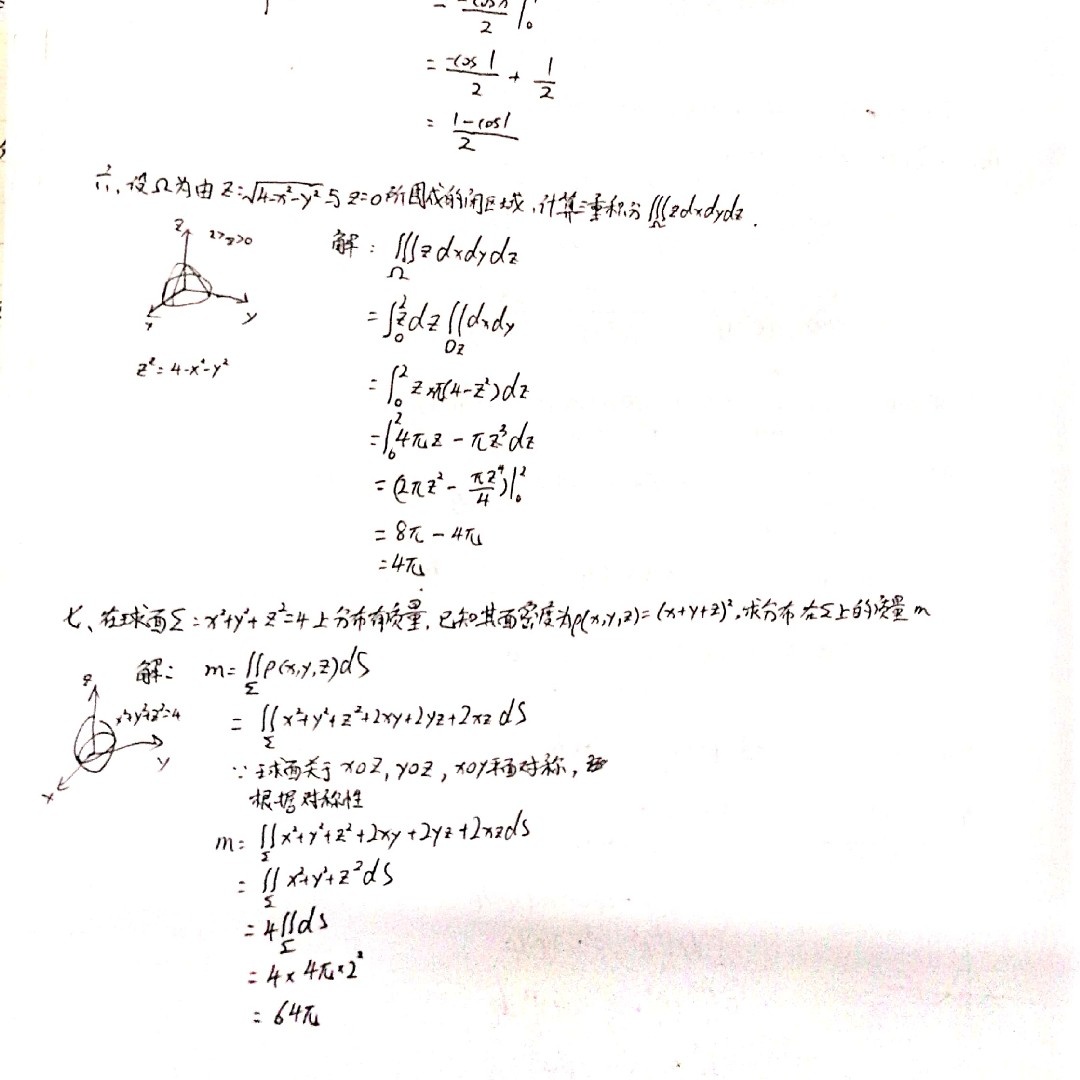 = -cosx/2 |₀
= -cos1/2 + 1/2
= 1-cos1/2
六、设Ω为由 z=√4-x²-y² 与 z=0 所围成的闭区域,计算三重积分∭_Ω zdxdydz.
z 2>z>0
x y
z²=4-x²-y²
解: ∭_Ω z dxdydz
= ∫₀² z dz ∬_Dz dxdy
= ∫₀² z π(4-z²)dz
= ∫₀² 4πz - πz³ dz
= (2πz² - πz⁴/4)|₀²
= 8π - 4π
= 4π
七、在球面Σ:x²+y²+z²=4上分布有质量,已知其面密度为ρ(x,y,z)=(x+y+z)²,求分布在Σ上的质量m
z
x²+y²+z²=4
y
x
解: m=∬_Σ ρ(x,y,z)dS
= ∬_Σ x²+y²+z²+2xy+2yz+2xz dS
∵球面关于 xOz, yOz, xOy平面对称,
根据对称性
m= ∬_Σ x²+y²+z²+2xy+2yz+2xzdS
= ∬_Σ x²+y²+z²dS
= 4∬_Σ dS
= 4×4π×2²
= 64π